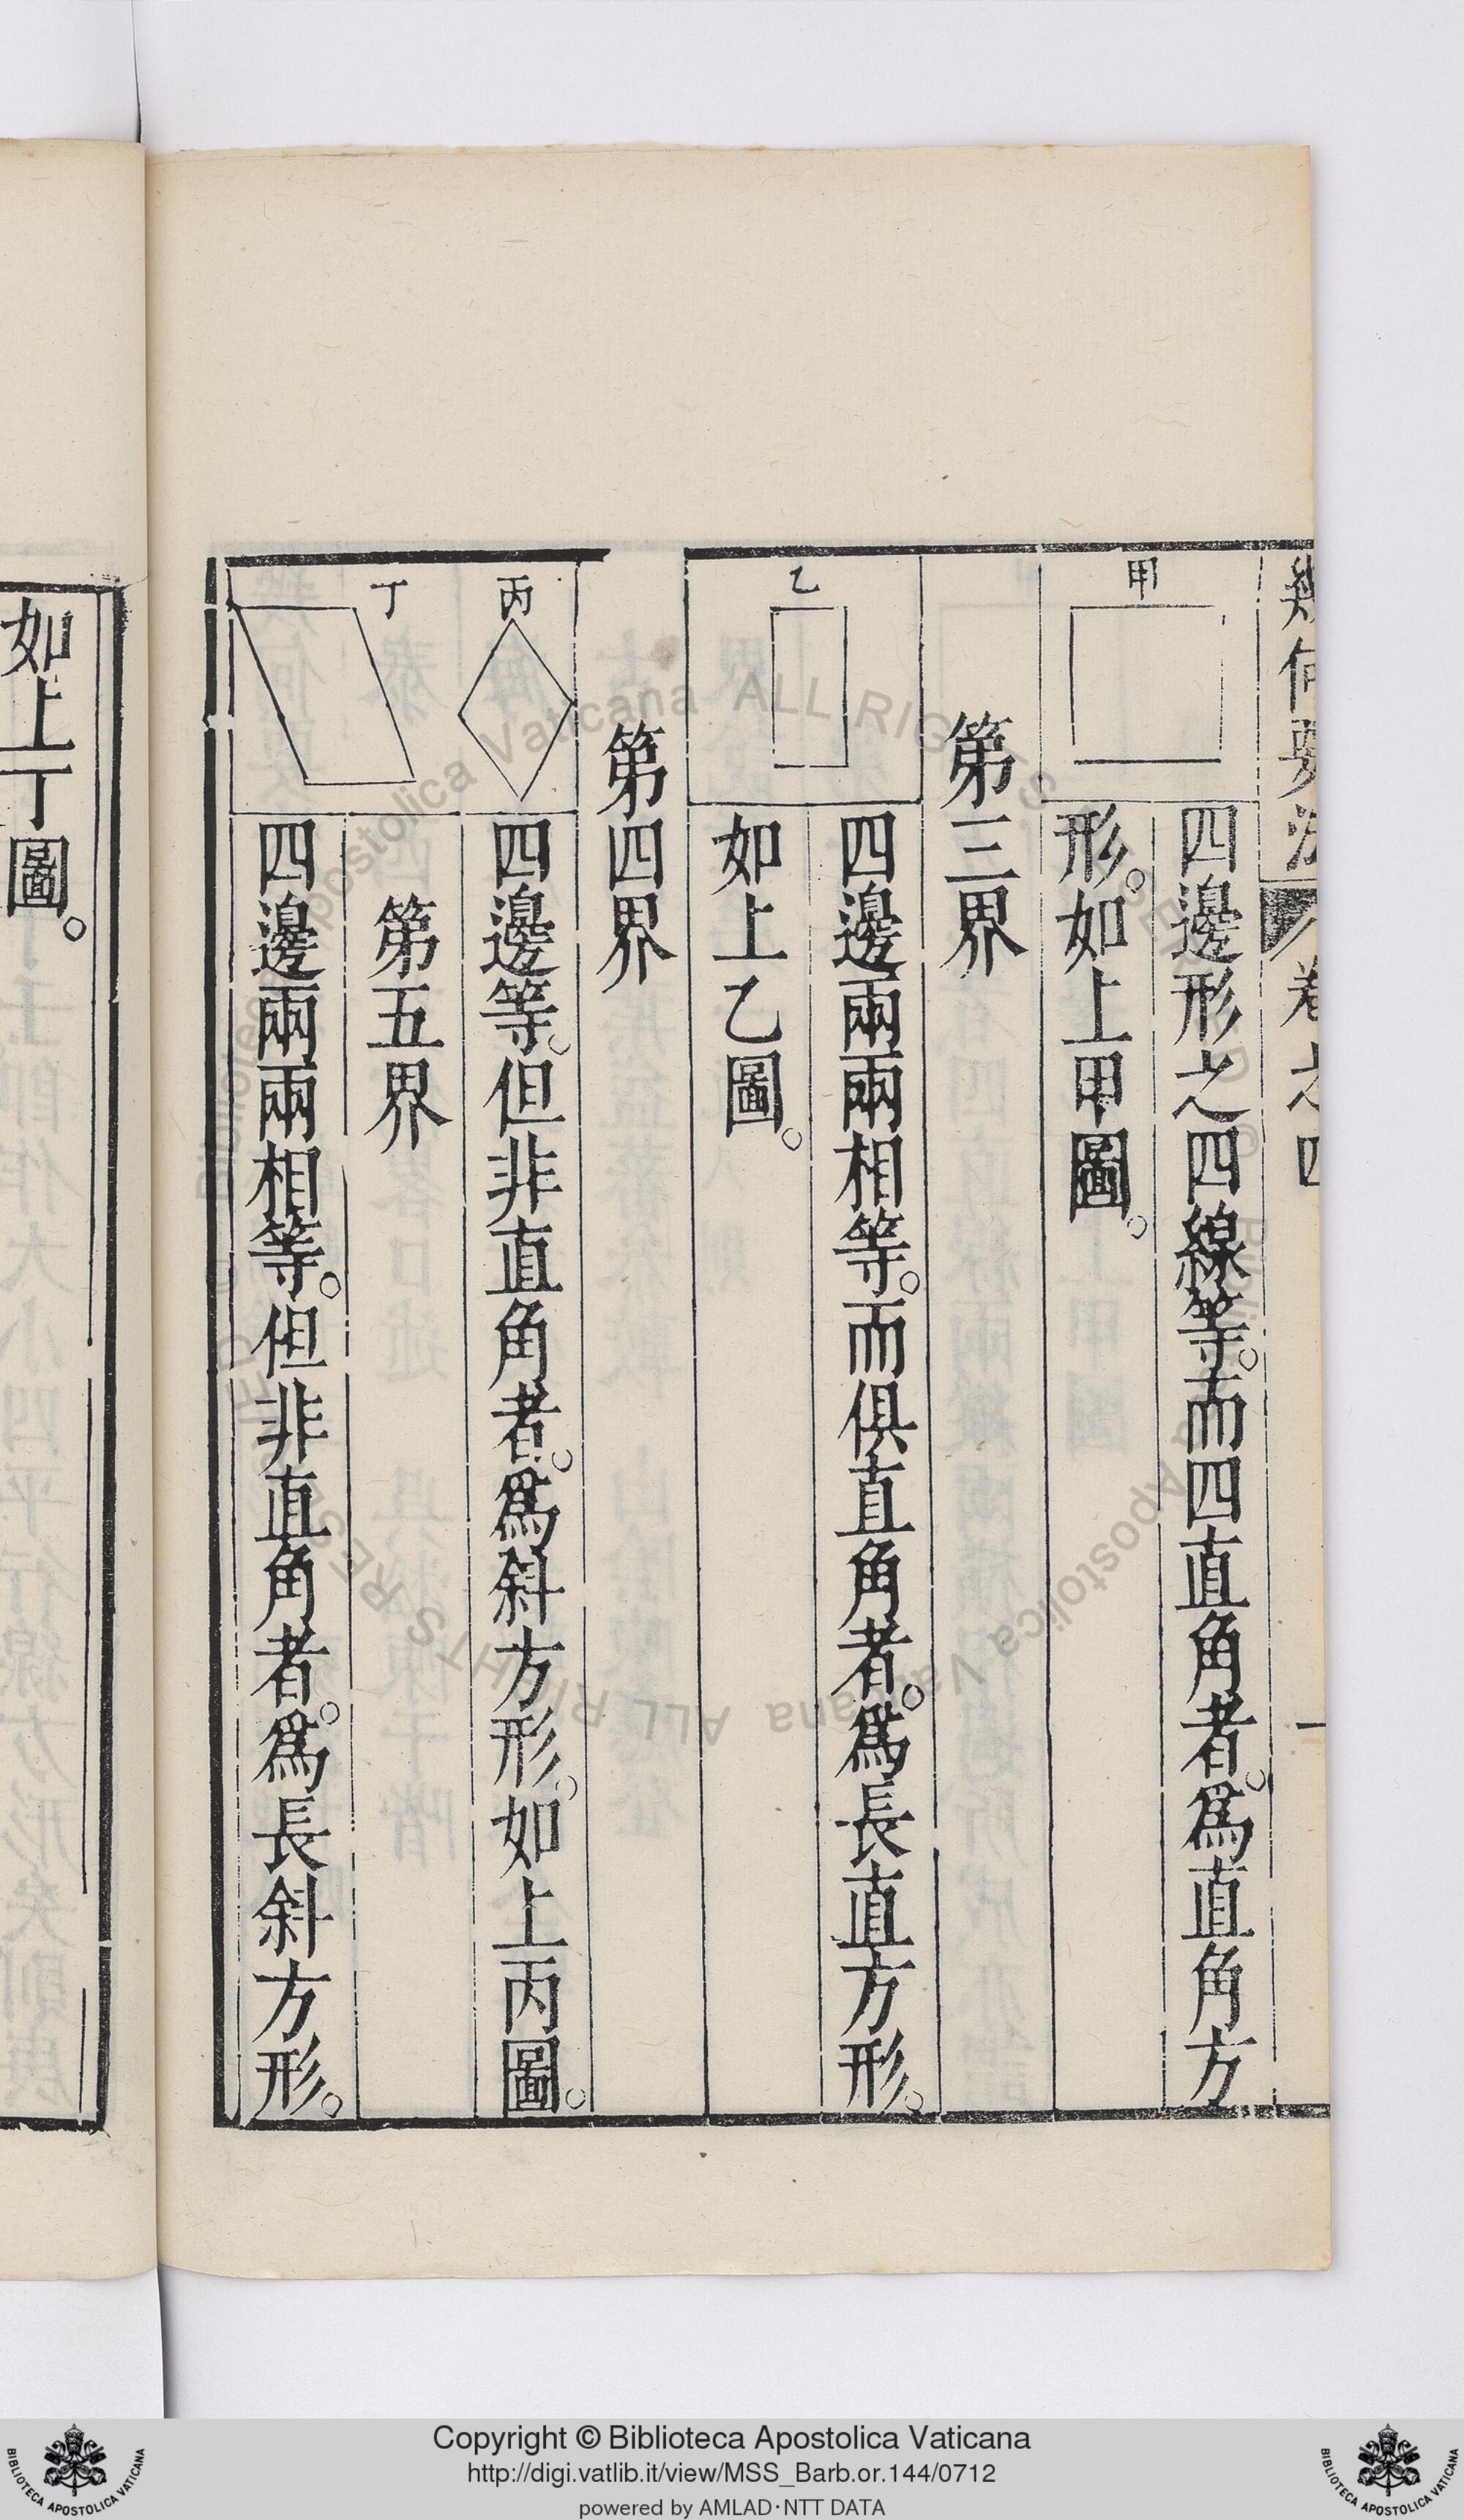 幾何要法 卷之四 一
甲
四邊形之四線等。而四直角者。爲直角方
形。如上甲圖。
第三界
乙
四邊兩兩相等。而俱直角者。爲長直方形。
如上乙圖。
第四界
丙
四邊等。但非直角者。爲斜方形。如上丙圖。
丁
第五界
四邊兩兩相等。但非直角者。爲長斜方形。
如上丁圖。
Copyright © Biblioteca Apostolica Vaticana
http://digi.vatlib.it/view/MSS_Barb.or.144/0712
powered by AMLAD·NTT DATA
BIBLIOTECA APOSTOLICA VATICANA
BIBLIOTECA APOSTOLICA VATICANA